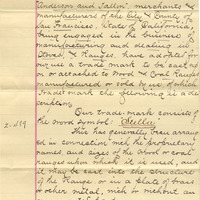 Anderson and Tallon, merchants &
manufacturers of the City & County of
San Francisco, State of California,
being engaged in the business of
manufacturing and dealing in
Stoves & Ranges, have adopted for
our use a trade mark to be cast up
on or attached to Wood & Coal Ranges
manufactured or sold by us, of which
Trade mark the following is a de
scription.
Our Trade-mark consists of
the word symbol: "Stella"
This has generally been arranged
in connection with the proprietary
names and sizes of the Wood or Coal
ranges upon which it is used, and
it may be cast into the structure
of the Range or in a plate of brass
or other metal, with or without an